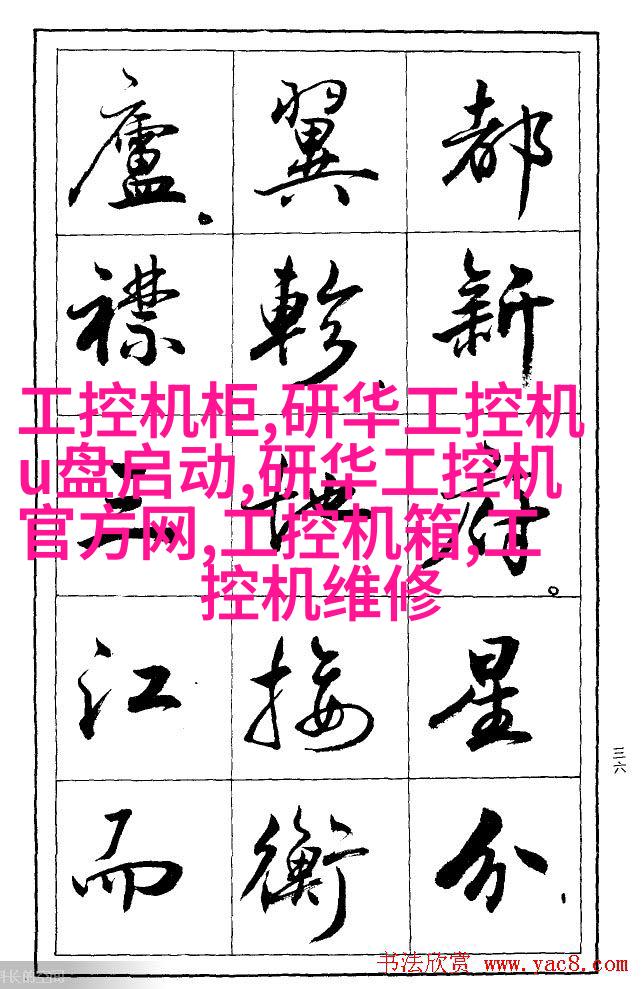 都新府。星分、
翼軫、地接衡
廬。襟三江而
工控机柜,研华工控机
u盘启动,研华工控机
官方网,工控机箱,工
控机维修
三六
书法欣赏 www.yac8.com
长的空间